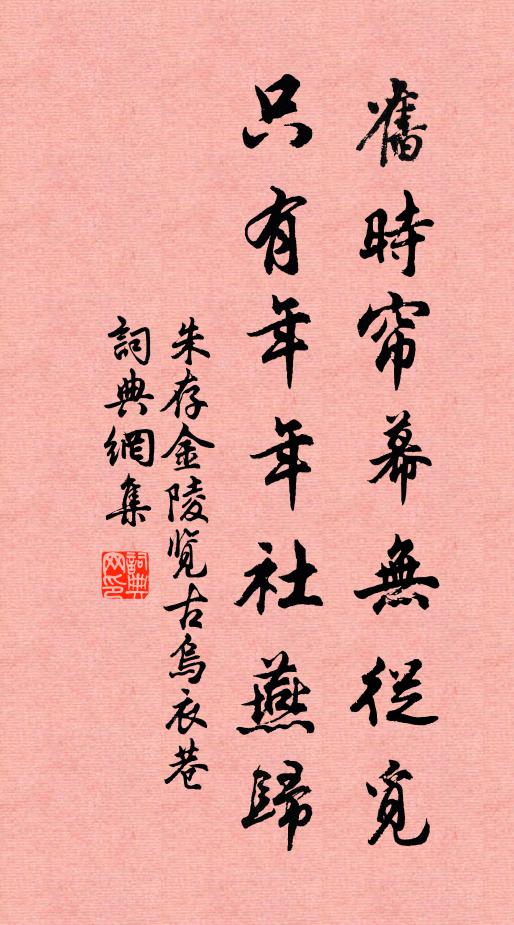 舊時帘幕無從覓
只有年年社燕歸
朱存金陵覽古烏衣巷
詞典網集
詞典網印